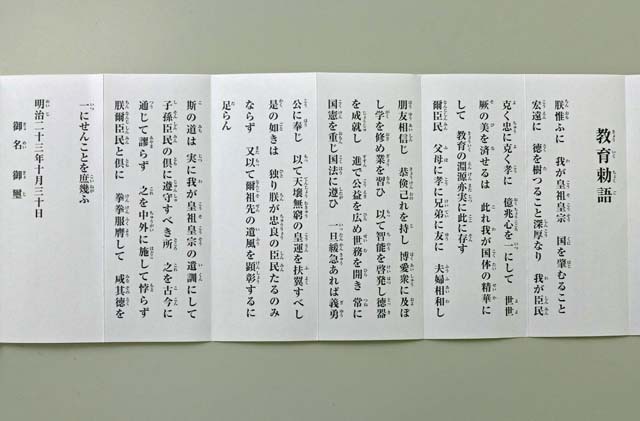 教育勅語
朕惟ふに 我が皇祖皇宗 国を肇むること
宏遠に 徳を樹つること深厚なり 我が臣民
克く忠に克く孝に 億兆心を一にして 世世
厥の美を済せるは 此れ我が国体の精華に
して 教育の淵源亦実に此に存す
爾臣民 父母に孝に兄弟に友に 夫婦相和し
朋友相信じ 恭倹己れを持し 博愛衆に及ぼ
し学を修め業を習ひ 以て智能を啓発し徳器
を成就し 進で公益を広め世務を開き 常に
国憲を重じ国法に遵ひ 一旦緩急あれば義勇
公に奉じ 以て天壌無窮の皇運を扶翼すべし
是の如きは 独り朕が忠良の臣民たるのみ
ならず 又以て爾祖先の遺風を顕彰するに
足らん
斯の道は 実に我が皇祖皇宗の遺訓にして
子孫臣民の倶に遵守すべき所 之を古今に
通じて謬らず 之を中外に施して悖らず
朕爾臣民と倶に 拳拳服膺して 咸其徳を
一にせんことを庶幾ふ
明治二十三年十月三十日
御名 御璽